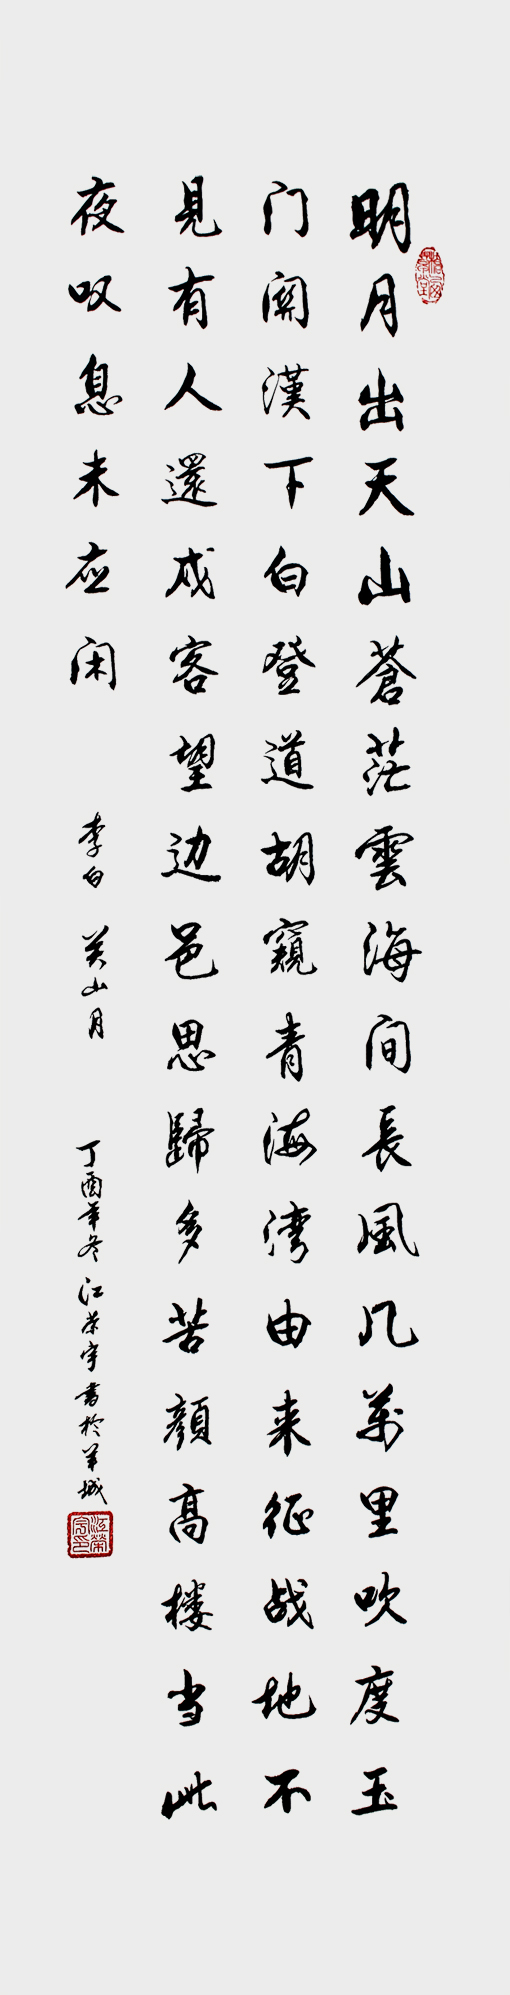 明月出天山蒼茫雲海间長風几萬里吹度玉
门関漢下白登道胡窺青海湾由来征战地不
見有人還成客望边邑思歸多苦顔高楼当此
夜叹息未应闲
李白 关山月 丁酉年冬江荣宇書於羊城
江榮宇印